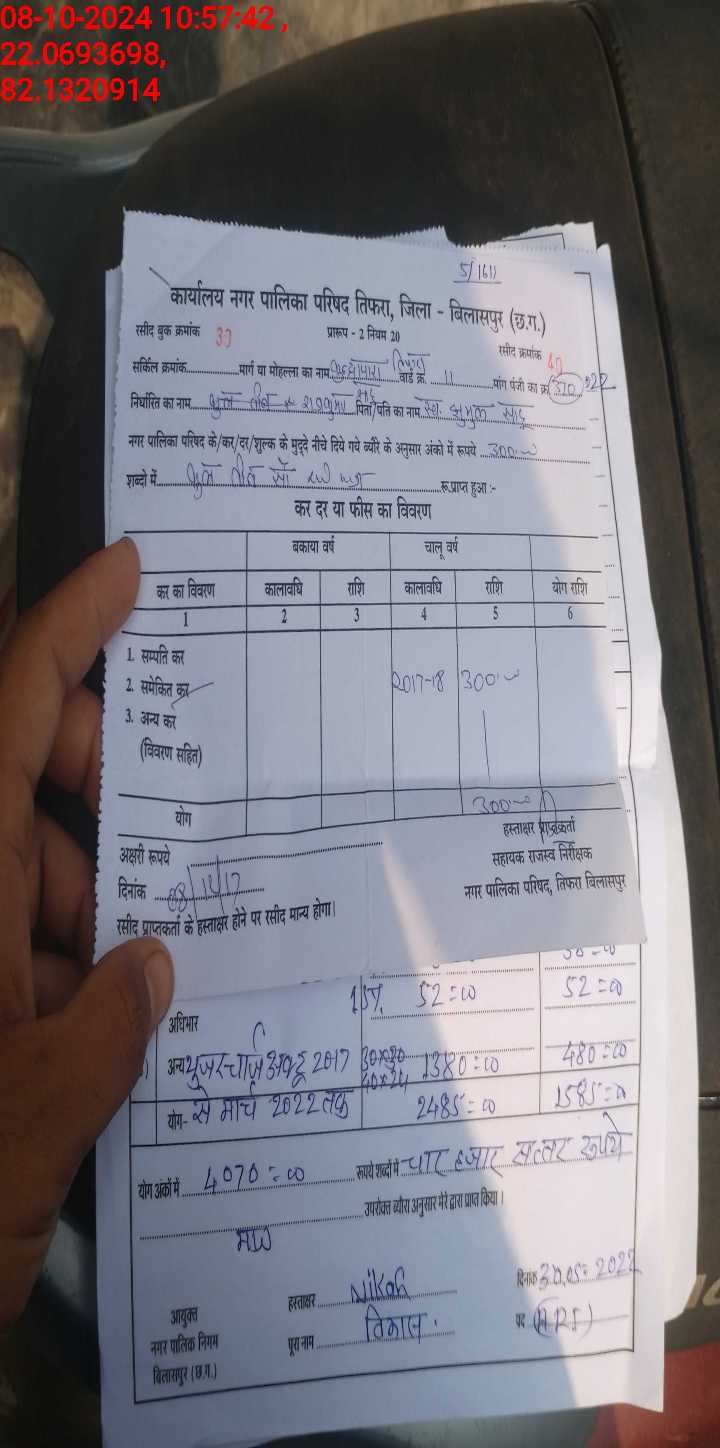 08-10-2024 10:57:42 ,
22.0693698,
82.1320914
5/1611
कार्यालय नगर पालिका परिषद तिफरा, जिला - बिलासपुर (छ.ग.)
रसीद बुक क्रमांक 39 प्रारूप - 2 नियम 20 रसीद क्रमांक 40
सर्किल क्रमांक मार्ग या मोहल्ला का नाम तिफरा वार्ड क्र. 11 मांग पंजी का क्र 370
निर्धारित का नाम पिता/पति का नाम स्व. साहू
नगर पालिका परिषद के/कर/दर/शुल्क के मुद्दे नीचे दिये गये ब्यौरे के अनुसार अंको में रूपये 300
शब्दो में रू.प्राप्त हुआ :-
कर दर या फीस का विवरण
बकाया वर्ष चालू वर्ष
कर का विवरण कालावधि राशि कालावधि राशि योग राशि
1 2 3 4 5 6
1. सम्पति कर
2. समेकित कर 2017-18 300
3. अन्य कर
(विवरण सहित)
योग 300
हस्ताक्षर प्राप्तकर्ता
अक्षरी रूपये सहायक राजस्व निरीक्षक
दिनांक नगर पालिका परिषद, तिफरा बिलासपुर
रसीद प्राप्तकर्ता के हस्ताक्षर होने पर रसीद मान्य होगा।
अधिभार 15% 52=00 52=00
अन्य यूजर चार्ज अक्टू 2017 1380=00 480=00
योग- से मार्च 2022 तक 2485=00 1585=00
योग अंकों में 4070=00 रूपये शब्दों में चार हजार सत्तर रूपये
मात्र उपरोक्त ब्यौरा अनुसार मेरे द्वारा प्राप्त किया।
दिनांक 30.05.2022
आयुक्त हस्ताक्षर
नगर पालिक निगम पूरा नाम विकास. पद (ARI)
बिलासपुर (छ.ग.)